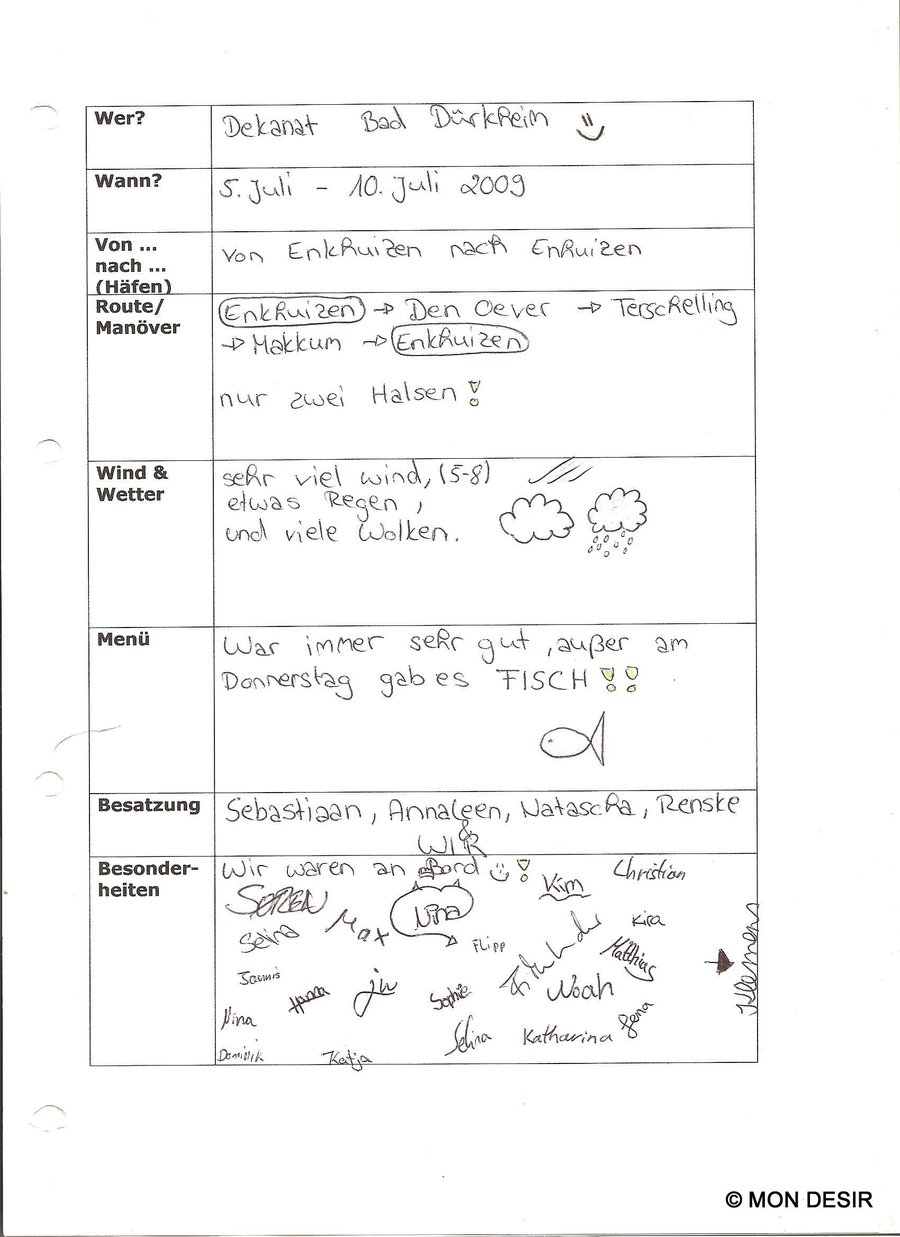 Wer?
Dekanat Bad Dürkheim
Wann?
5. Juli - 10. Juli 2009
Von ...
nach ...
(Häfen)
von Enkhuizen nach Enhuizen
Route/
Manöver
Enkhuizen → Den Oever → Terschelling
→ Makkum → Enkhuizen
nur zwei Halsen!
Wind &
Wetter
sehr viel wind, (5-8)
etwas Regen,
und viele Wolken.
Menü
War immer sehr gut, außer am
Donnerstag gab es FISCH!!
Besatzung
Sebastiaan, Annaleen, Natascha, Renske
&
WIR
Besonder-
heiten
Wir waren an Bord!
Kim
Christian
SÖREN
Max
Nina
Selina
Flipp
Kira
Matthias
Klemens
Jannis
Hanna
Sophie
Noah
Nina
Selina
Katharina
Jena
Dominik
Katja
© MON DESIR